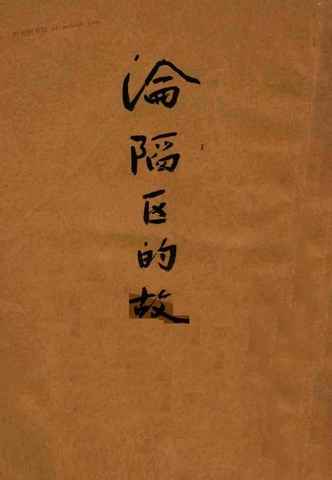 淪陷区的故